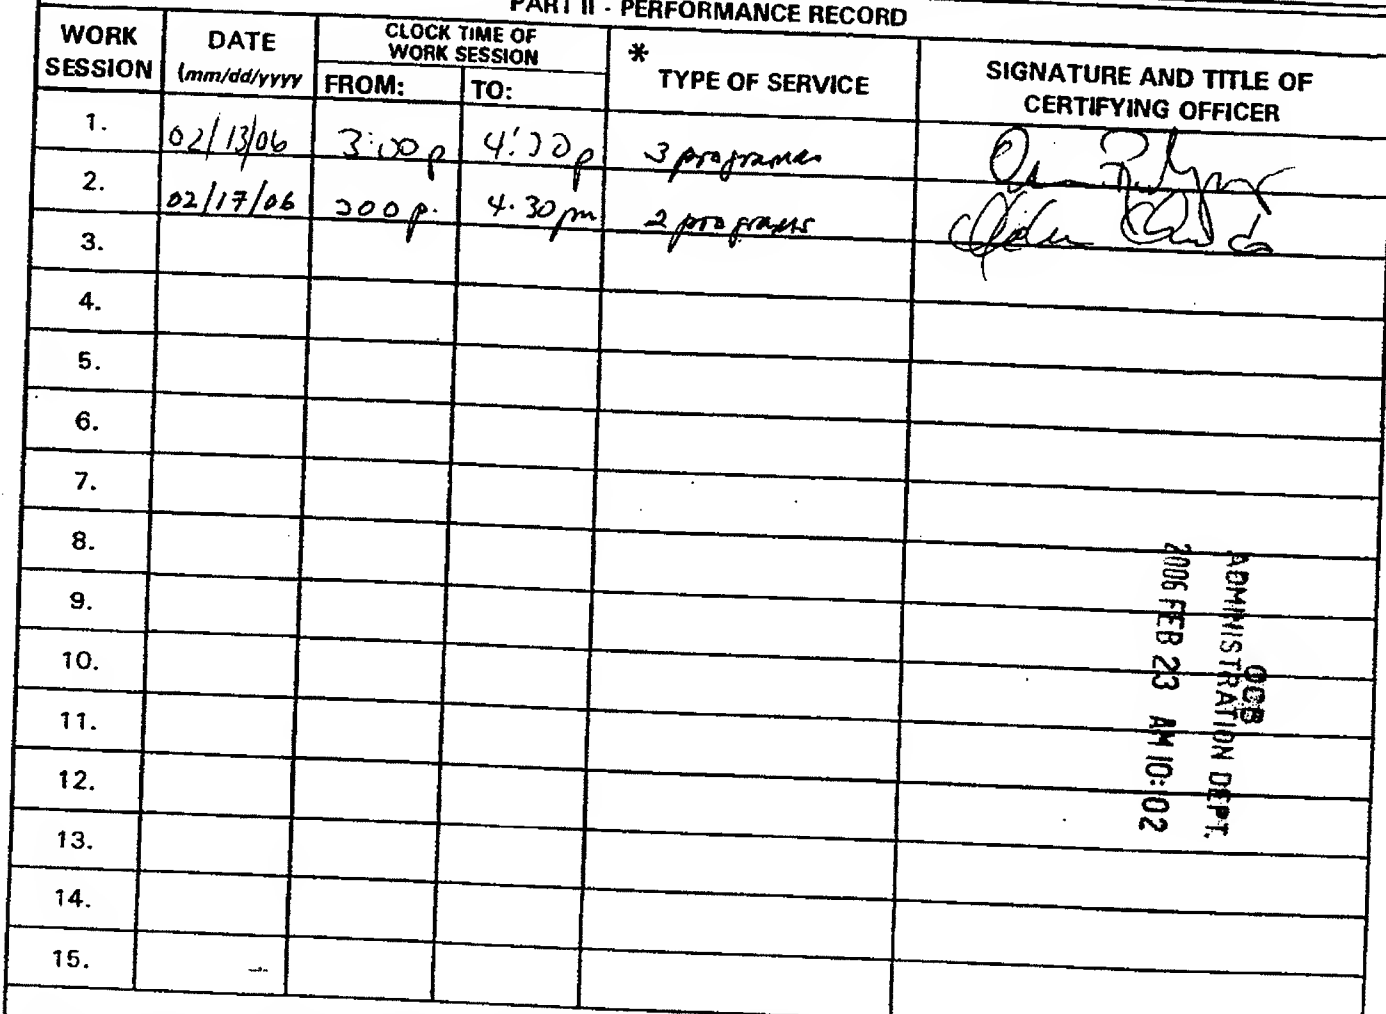 PART II - PERFORMANCE RECORD
WORK SESSION
DATE
(mm/dd/yyyy
CLOCK TIME OF WORK SESSION
FROM:
TO:
*
TYPE OF SERVICE
SIGNATURE AND TITLE OF CERTIFYING OFFICER
1. 02/13/06 3:00 p 3 programas
2. 02/17/06 200 p. 4.30 pm 2 programs
3.
4.
5.
6.
7.
8.
9.
10.
11.
12.
13.
14.
15.
OCB
ADMINISTRATION DEPT.
2006 FEB 23 AM 10:02